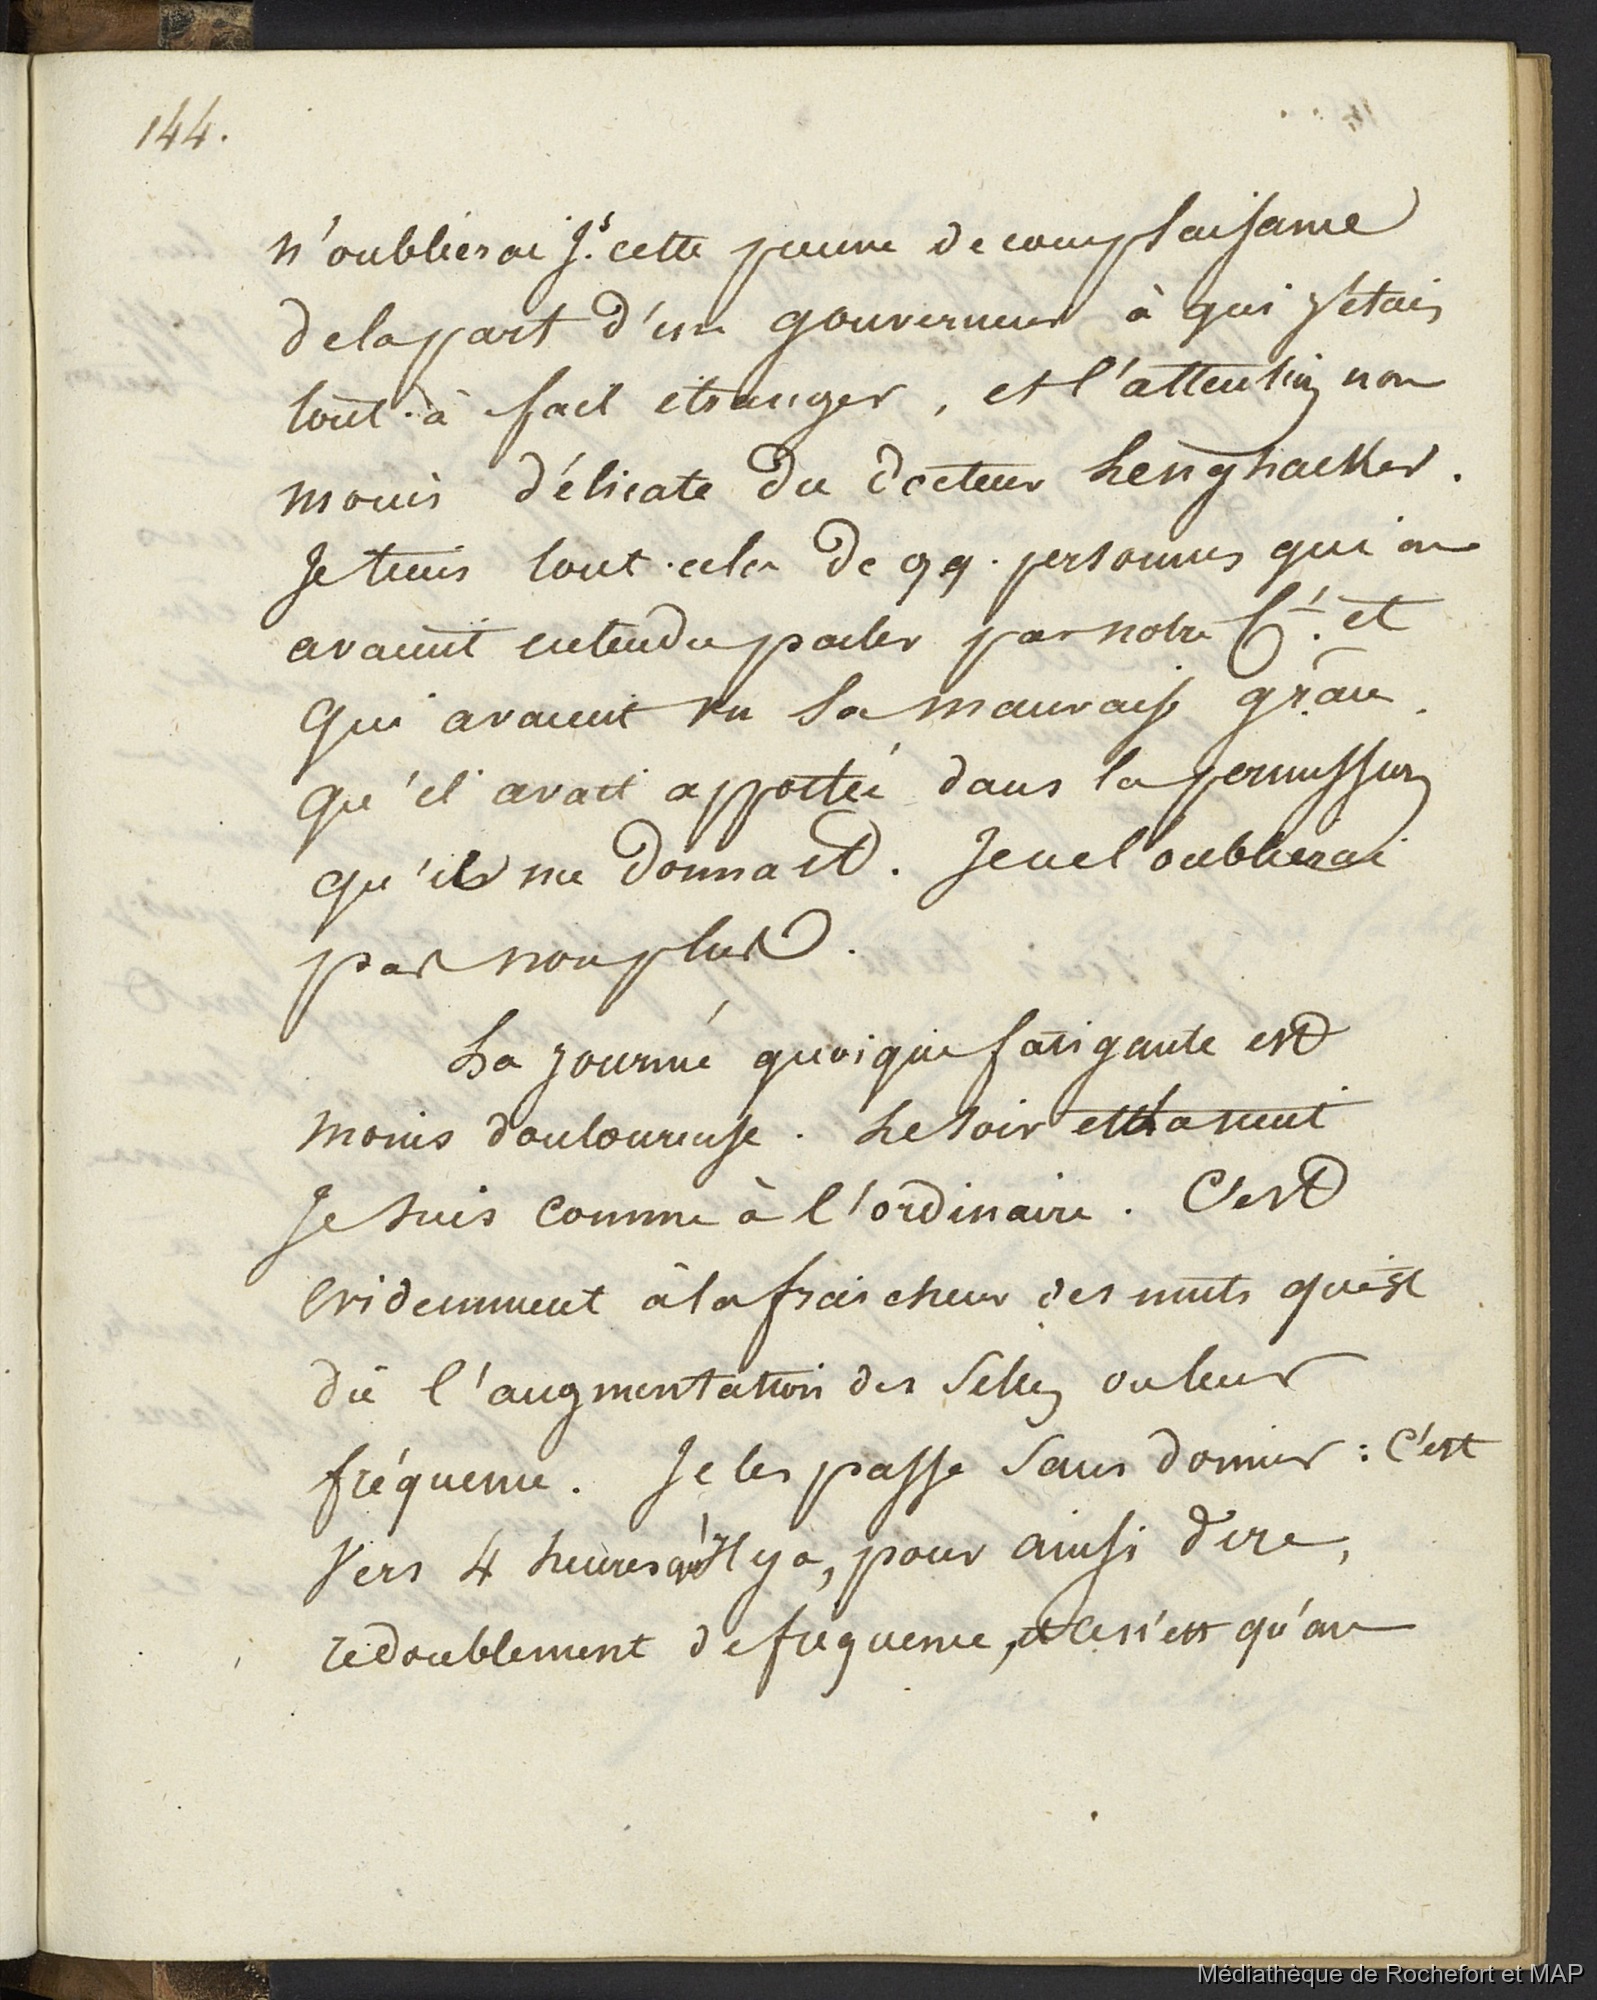 144.
n'oublierai J.s cette preuve de complaisance
de la part d'un gouverneur à qui j'étais
tout-à fait étranger, et l'attention non
moins délicate du docteur Lenghacker.
Je tiens tout cela de qq. personnes qui en
avaient entendu parler par notre Ct. et
qui avaient vu la mauvaise grâce
qu'il avait apportée dans la permission
qu'il me donna. Je ne l'oublierai
pas non plus.
La journée quoique fatigante est
moins douloureuse. Le soir et la nuit
Je suis comme à l'ordinaire. C'est
evidemment à la fraicheur des nuits qu'est
dû l'augmentation des selles ou leur
fréquence. Je les passe sans dormir : c'est
vers 4 heures qu'il y a, pour ainsi dire,
redoublement de fréquence, et ce n'est qu'au
Médiathèque de Rochefort et MAP